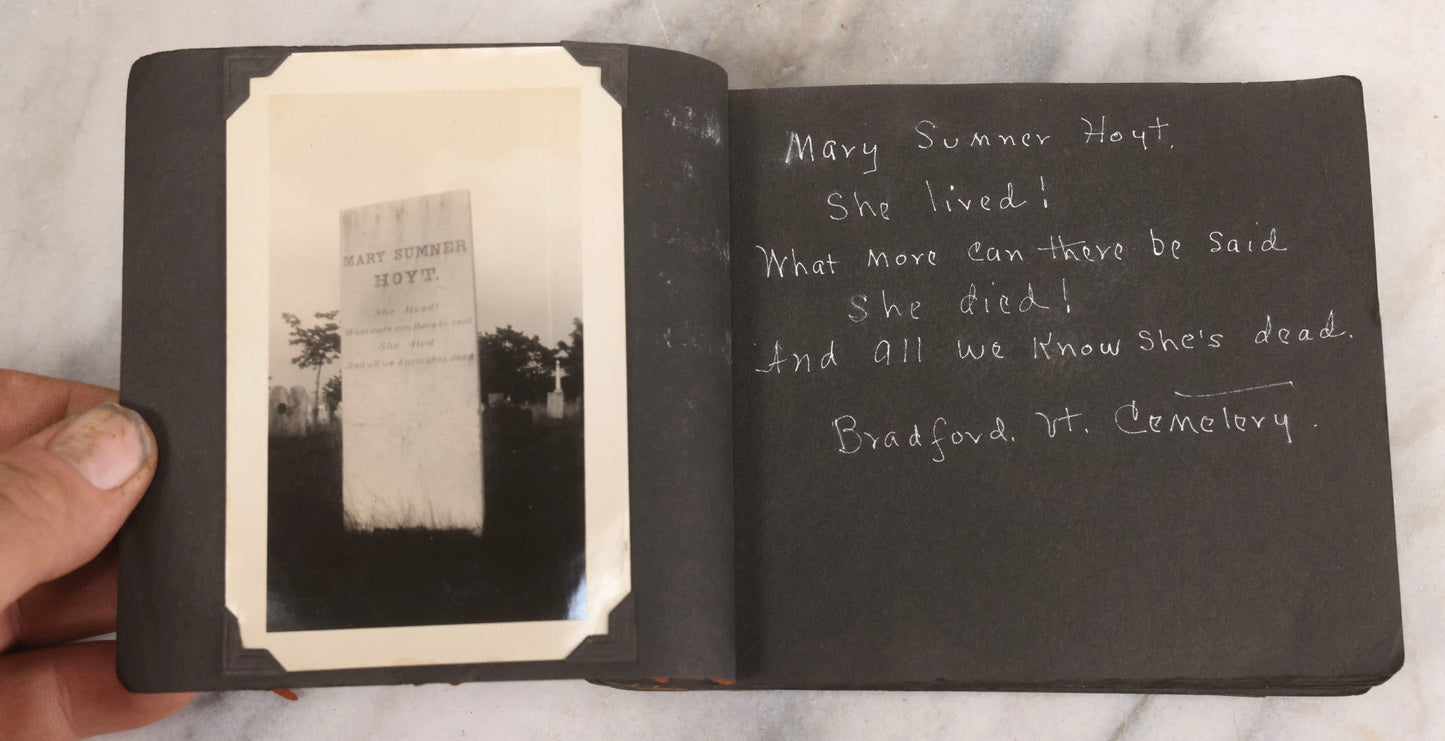 MARY SUMNER
HOYT.
She lived!
What more can there be said
She died
And all we know she's dead
Mary Sumner Hoyt.
She lived!
What more can there be said
She died!
And all we know she's dead.
Bradford. Vt. Cemetery.